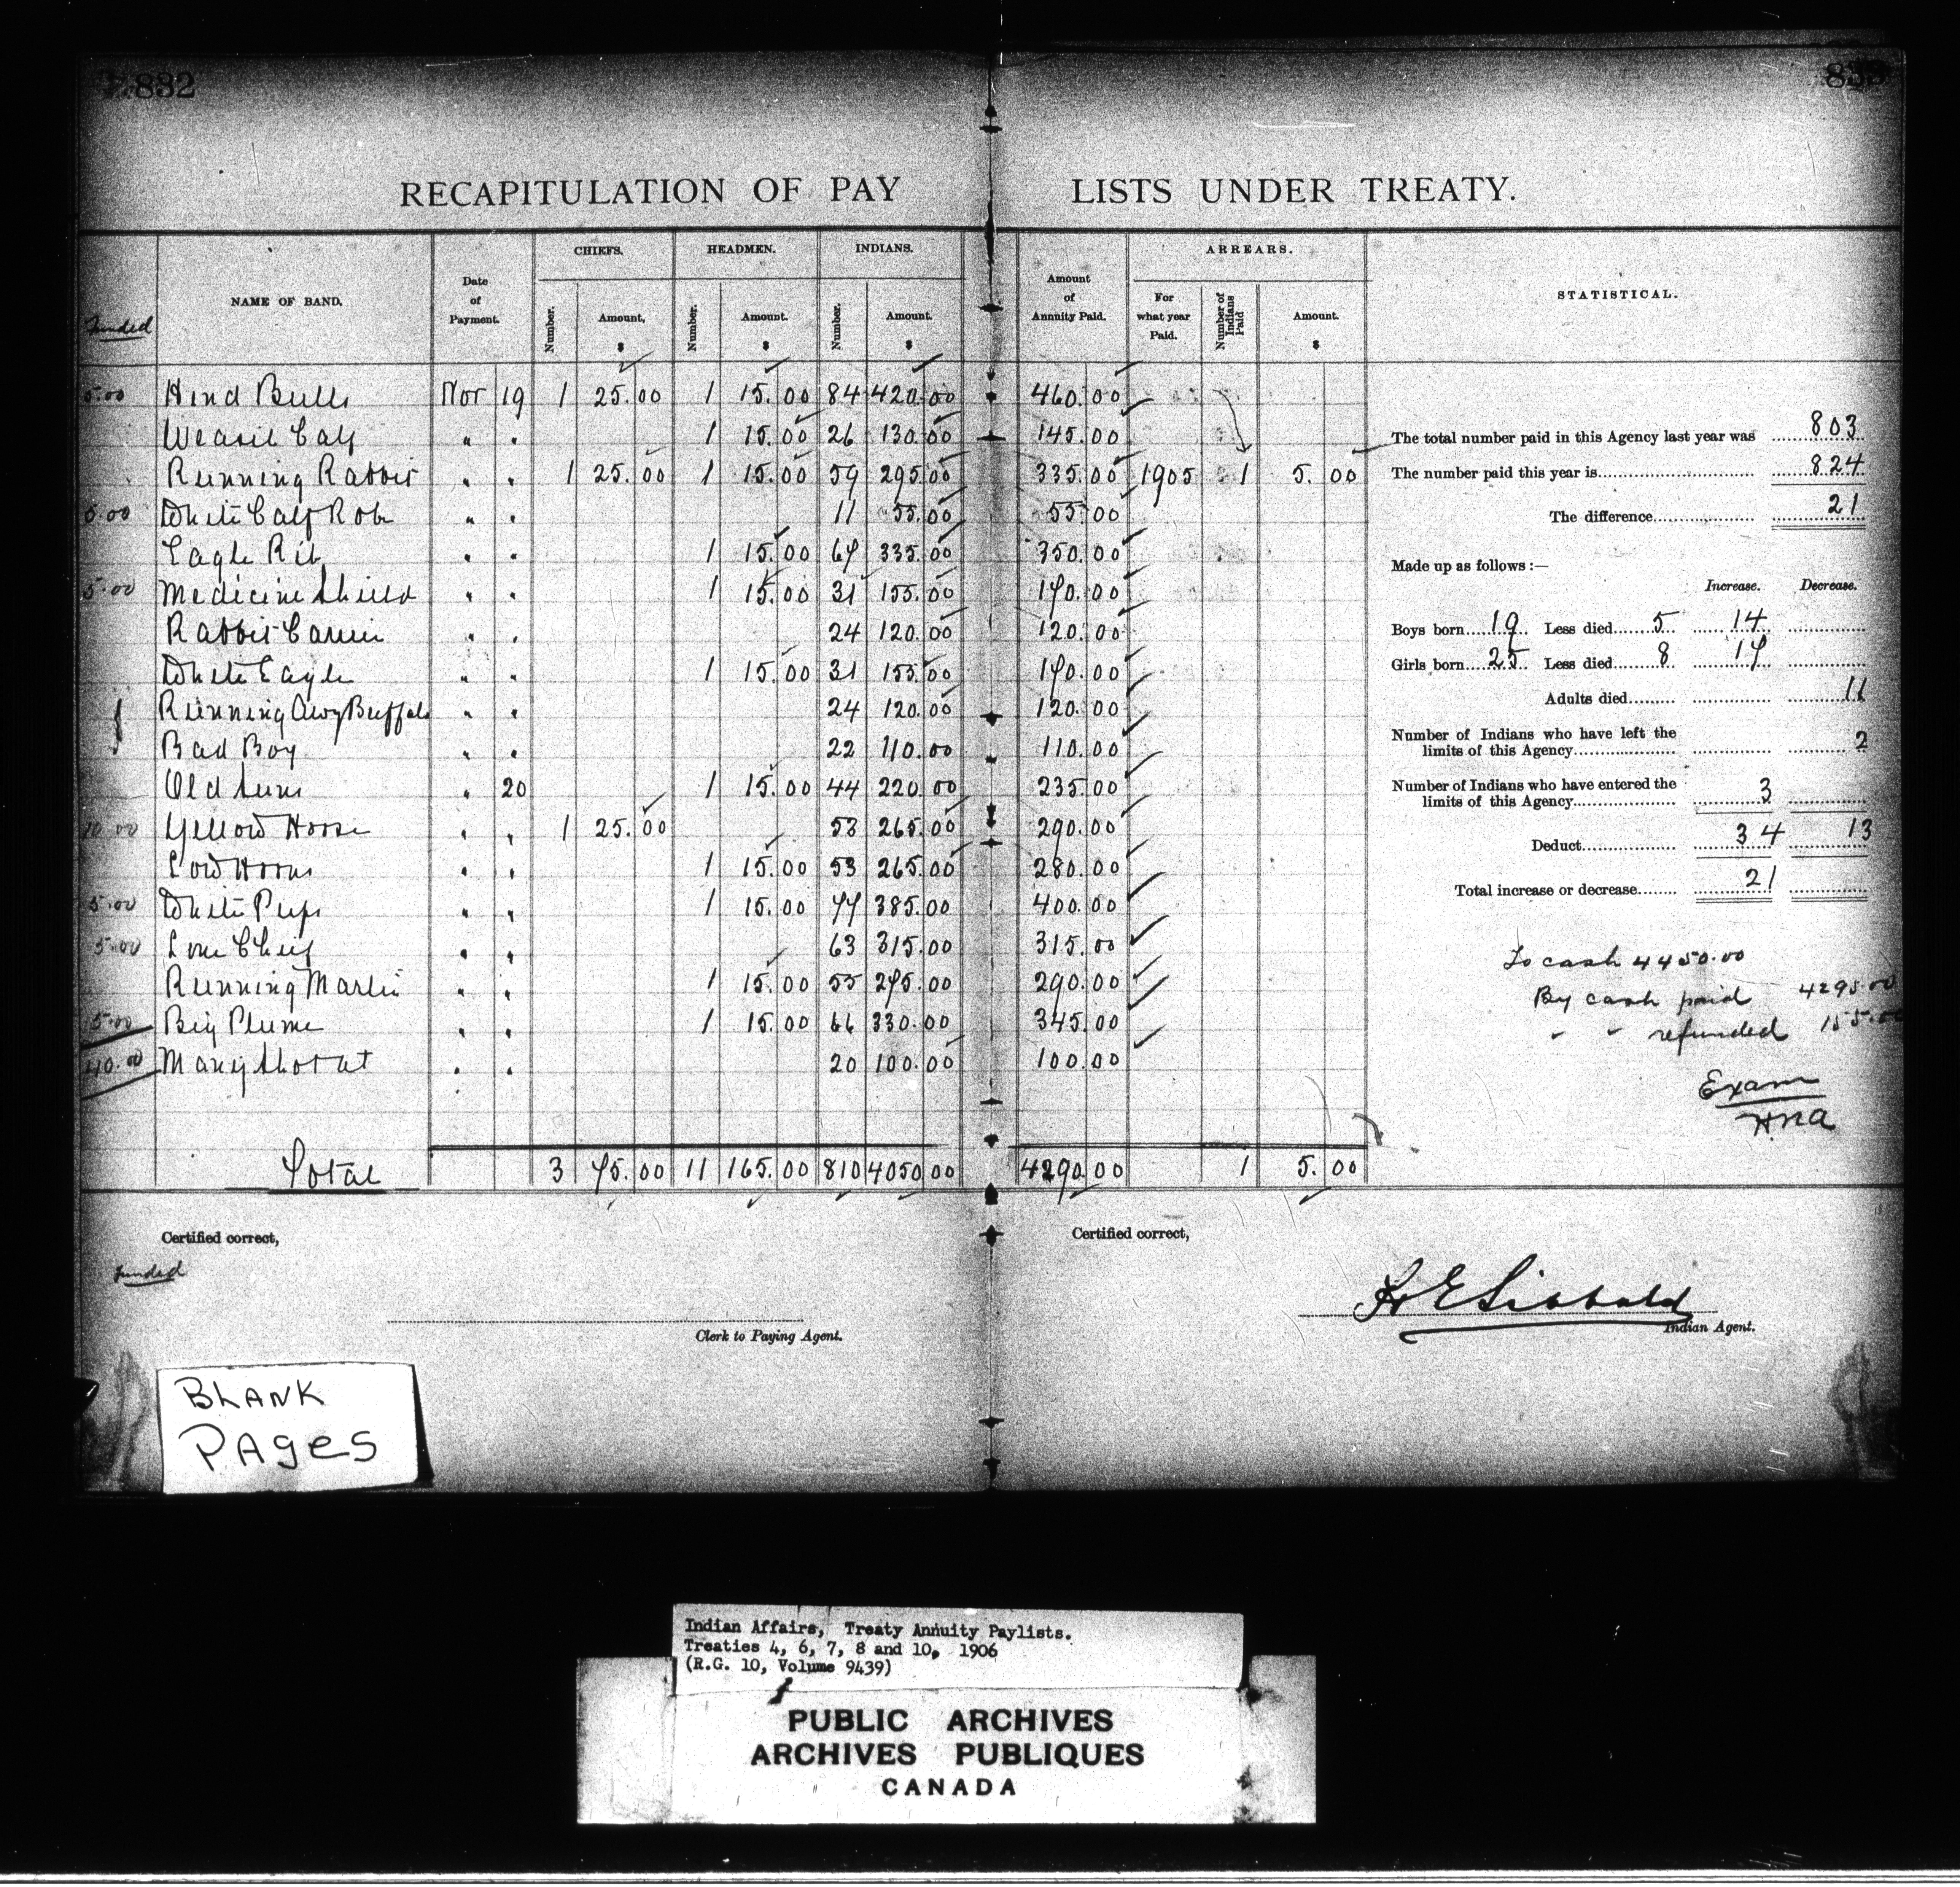 832
RECAPITULATION OF PAY LISTS UNDER TREATY.
Funded
NAME OF BAND.
Date of Payment.
CHIEFS. HEADMEN. INDIANS.
Number. Amount, $ Number. Amount. $ Number. Amount. $
Amount of Annuity Paid.
ARREARS.
For what year Paid. Number of Indians Paid Amount. $
STATISTICAL.
5.00 Hind Bull Nov 19 1 25.00 1 15.00 84 420.00 460.00
Weasil Calf " " 1 15.00 26 130.00 145.00
Running Rabbit " " 1 25.00 1 15.00 59 295.00 335.00 1905 1 5.00
5.00 White Calf Robe " " 11 55.00 55.00
Eagle Rib " " 1 15.00 67 335.00 350.00
5.00 Medicine Shield " " 1 15.00 31 155.00 170.00
Rabbit Carrier " " 24 120.00 120.00
White Eagle " " 1 15.00 31 155.00 170.00
Running Awy Buffalo " " 24 120.00 120.00
Bad Boy " " 22 110.00 110.00
Old Suns " 20 1 15.00 44 220.00 235.00
10.00 Yellow Horse " " 1 25.00 53 265.00 290.00
Low Horns " " 1 15.00 53 265.00 280.00
5.00 White Pups " " 1 15.00 77 385.00 400.00
5.00 Lone Cheif " " 63 315.00 315.00
Running Martin " " 1 15.00 55 275.00 290.00
5.00 Big Plume " " 1 15.00 66 330.00 345.00
40.00 Many Shot at " " 20 100.00 100.00
Total 3 75.00 11 165.00 810 4050.00 4290.00 1 5.00
The total number paid in this Agency last year was 803
The number paid this year is 824
The difference 21
Made up as follows :—
Increase. Decrease.
Boys born 19 Less died 5 14
Girls born 25 Less died 8 17
Adults died 11
Number of Indians who have left the
limits of this Agency 2
Number of Indians who have entered the
limits of this Agency 3
Deduct 34 13
Total increase or decrease 21
To cash 4450.00
By cash paid 4295.00
" " refunded 155.00
Exam
HNA
Certified correct,
Funded
Clerk to Paying Agent.
Certified correct,
H E Sibbald
Indian Agent.
BLANK
PAgeS
Indian Affairs, Treaty Annuity Paylists.
Treaties 4, 6, 7, 8 and 10, 1906
(R.G. 10, Volume 9439)
PUBLIC ARCHIVES
ARCHIVES PUBLIQUES
CANADA